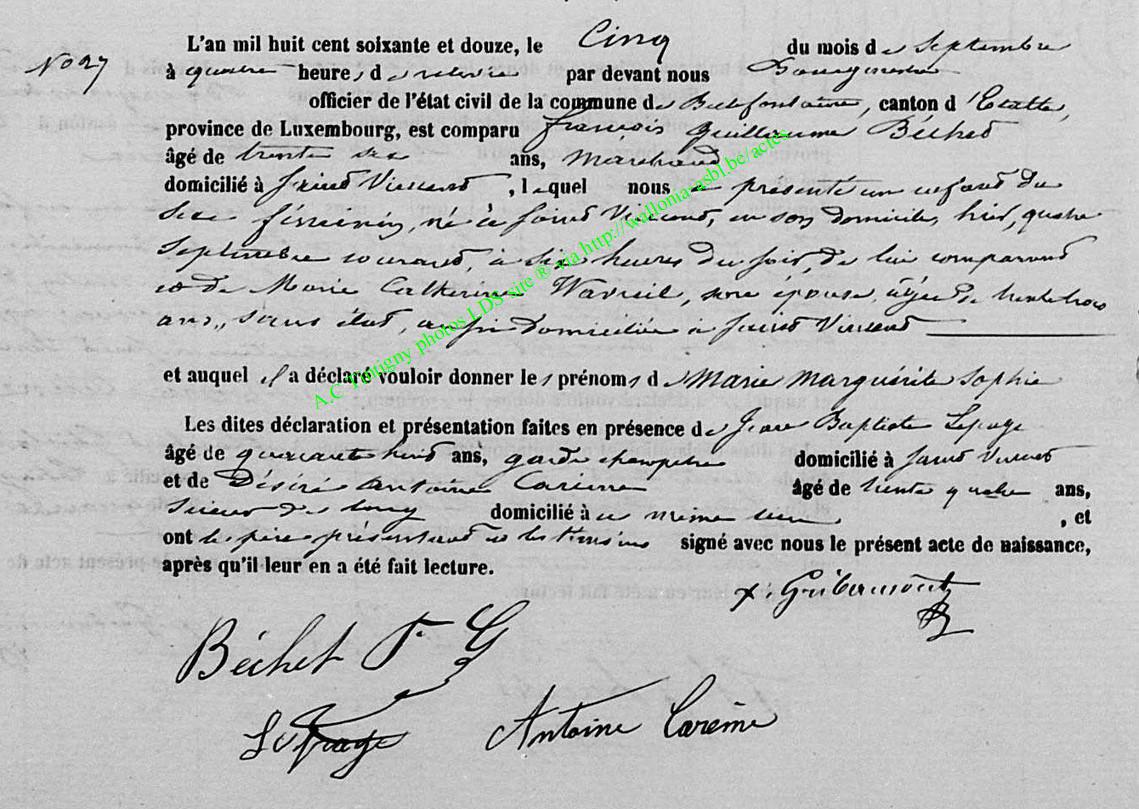 L'an mil huit cent soixante et douze, le Cinq du mois de Septembre
No 27
à quatre heures de relevée par devant nous Bourgmestre
officier de l'état civil de la commune de Bellefontaine, canton d'Etalle,
province de Luxembourg, est comparu françois Guillaume Béchet
âgé de trente six ans, Marchand
domicilié à Saint Vincent, lequel nous a présenté un enfant du
sexe féminin, né à Saint Vincent, en son domicile, hier, quatre
Septembre courant, à six heures du soir, de lui comparant
et de Marie Catherine son épouse, âgée de trente trois
ans, sans état, domiciliée à Saint Vincent
et auquel il a déclaré vouloir donner les prénoms de Marie Marguérite Sophie
Les dites déclaration et présentation faites en présence de Jean Baptiste Lepage
âgé de quarante huit ans, garde champêtre domicilié à Saint Vincent
et de Désiré Antoine Carême âgé de trente quatre ans,
Scieur de long domicilié à ce même lieu, et
ont les père présentant et les témoins signé avec nous le présent acte de naissance,
après qu'il leur en a été fait lecture.
A.C Tintigny photos LDS site ® via http://wallonia-asbl.be/actes
Gribaumont
Béchet F G
Lepage Antoine Carême